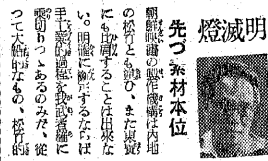 燈滅明
先づ素材本位
朝鮮映畫の製作機構は内地
の松竹とも違ひ、また東寶
にも比肩することは出來な
い。明確に檢討するならば
手工業的過程を我武者羅に
乘切りつゝあるのみだ、從
つて大船的なもの、松竹的